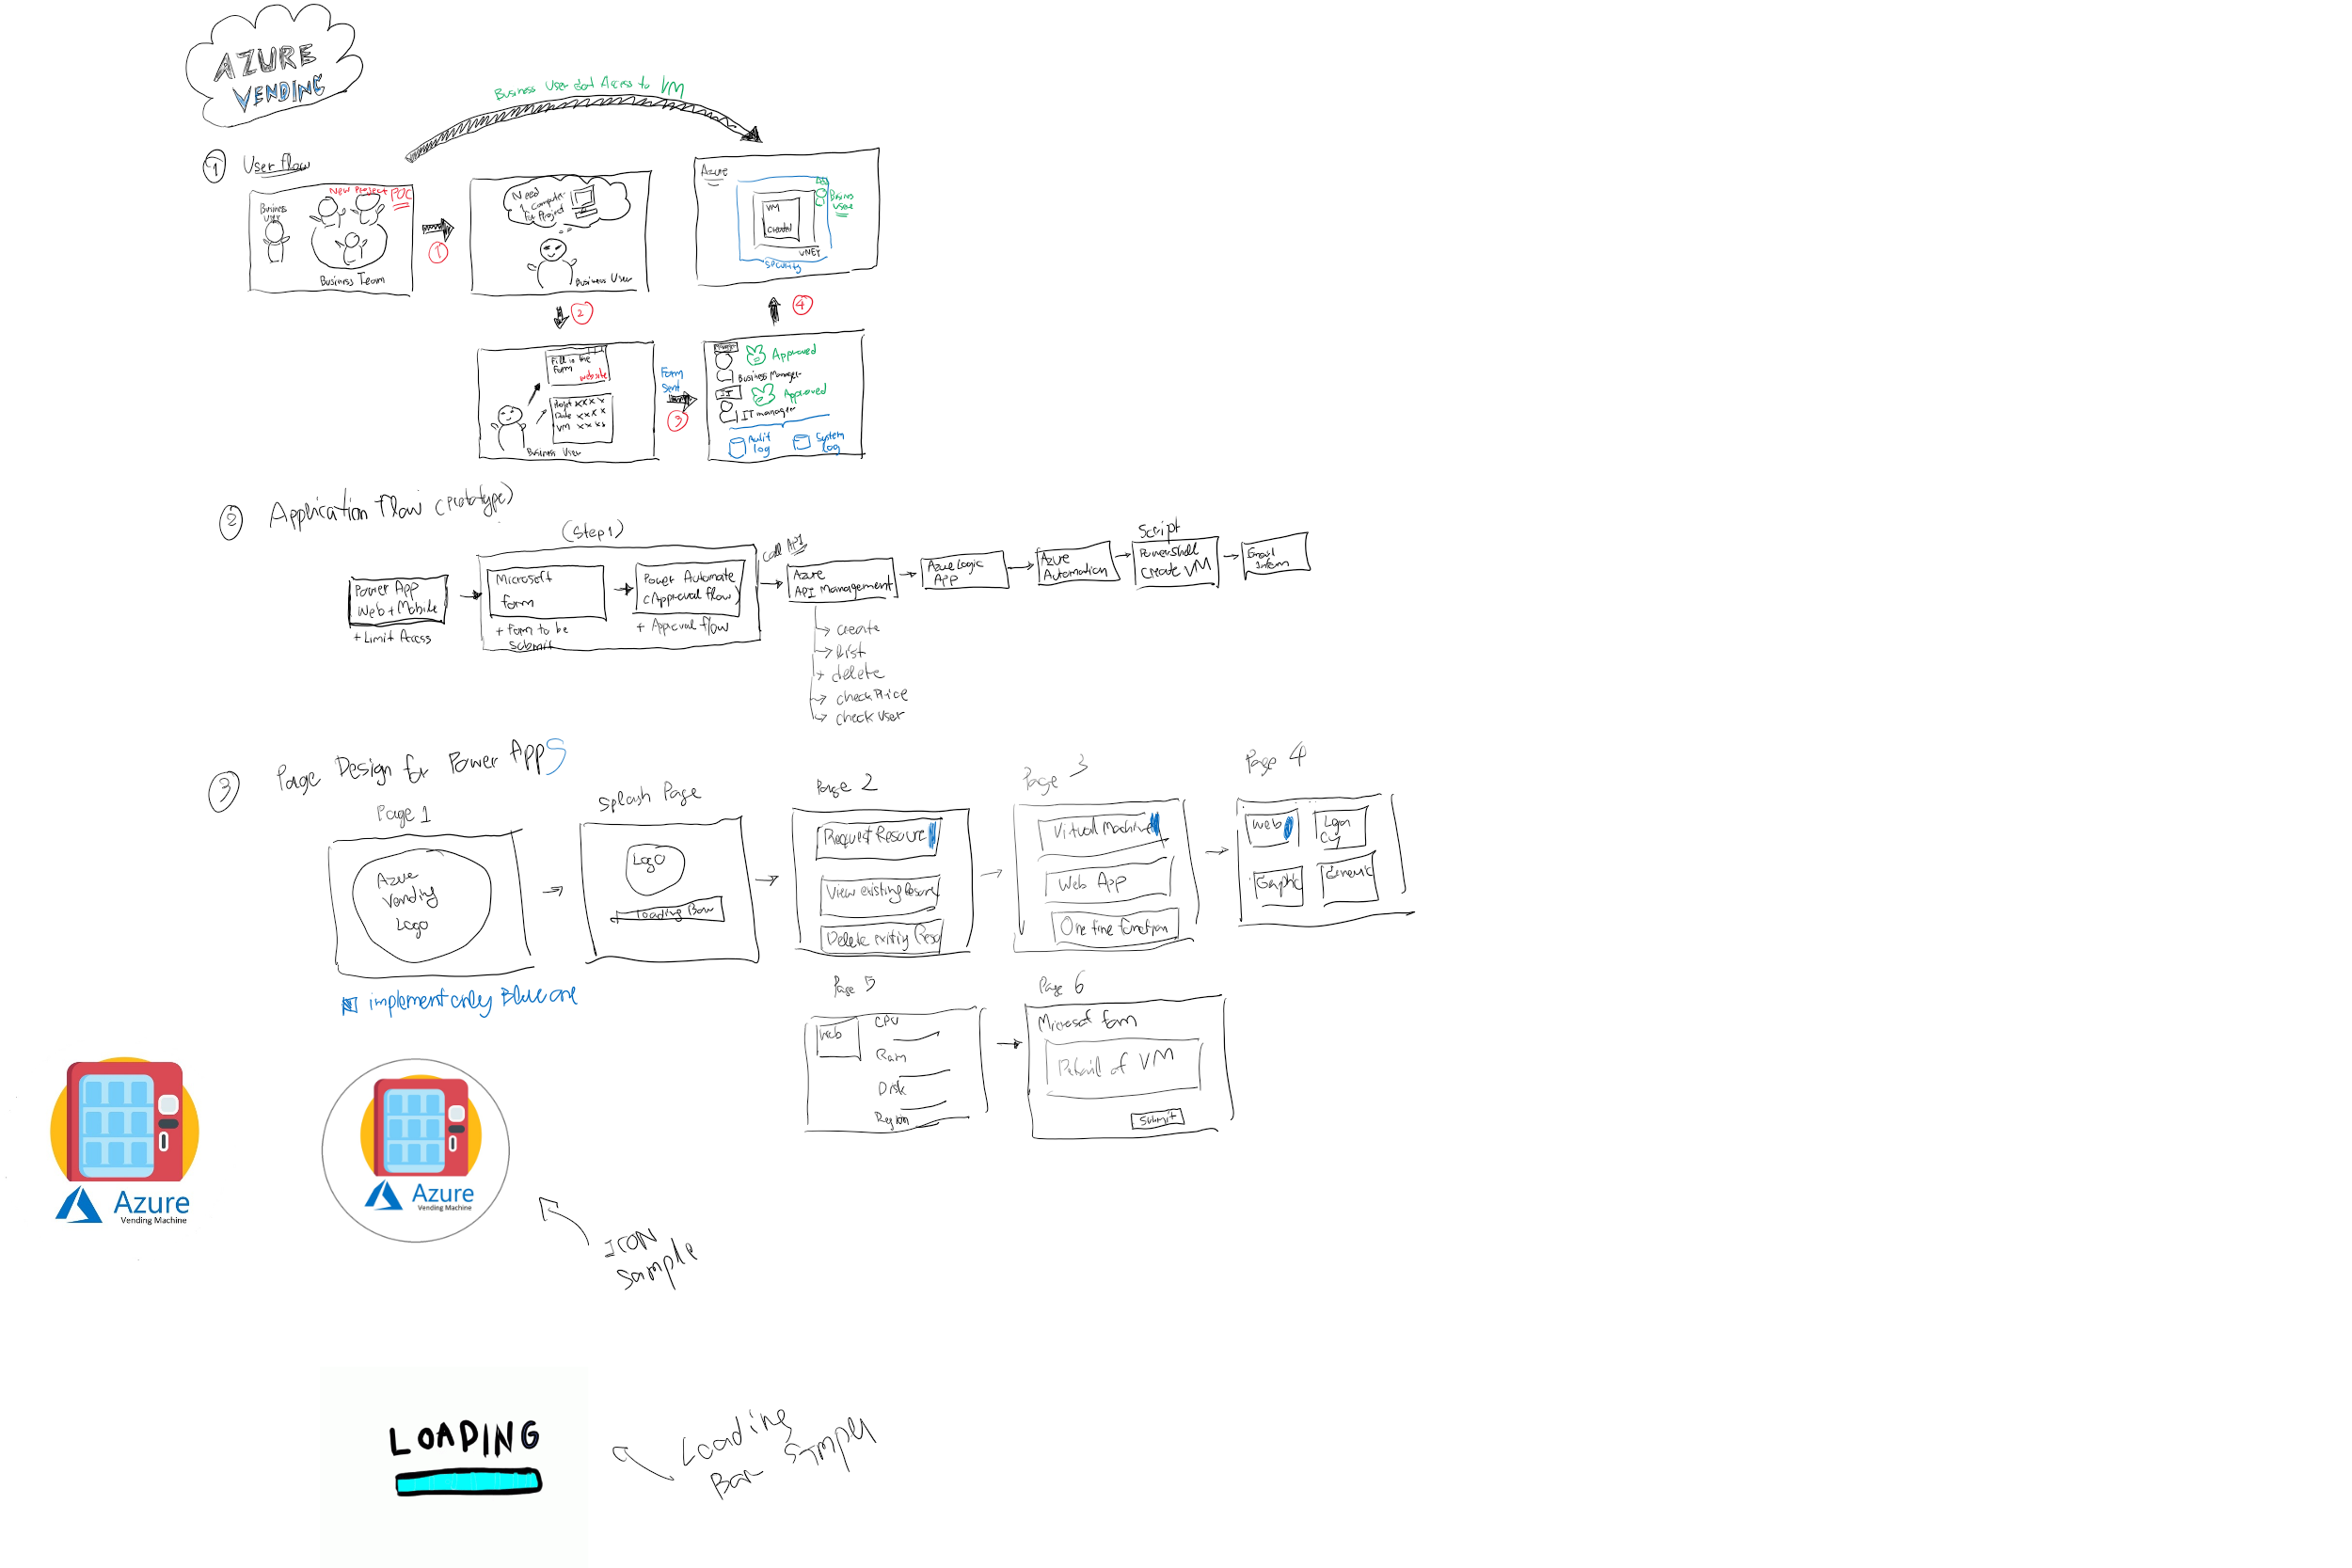 AZURE
VENDING
Business User Got Access to VM
1 User flow
New Project POC
Business
User
Business Team
1
Need
1 Computer
For Project
Business User
Azure
Business
User
VM
Created
VNET
Security
2
4
Fill in the
Form
website
Project xxxx
Date xxxx
VM xxxx
Business User
Form
Sent
3
Approved
Business Manager
IT
Approved
IT manager
Audit
log
System
log
2 Application Flow (Prototype)
(Step 1)
Power App
Web + Mobile
+ Limit Access
Microsoft
form
+ form to be
submit
Power Automate
(Approval flow)
+ Approval flow
Call API
Azure
API Management
create
list
delete
check Price
check user
Azure Logic
App
Azure
Automation
Script
Powershell
Create VM
Email
Inform
3 Page Design for Power Apps
Page 1
Azure
Vending
Logo
Splash Page
Logo
Loading Bar
Page 2
Request Resource
View existing Resource
Delete existing Reso
Page 3
Virtual Machine
Web App
One time function
Page 4
Web
Graphic
Generic
implement only Blue one
Page 5
Web
CPU
Ram
Disk
Region
Page 6
Microsoft form
Detail of VM
Submit
Azure
Vending Machine
Azure
Vending Machine
ICON
Sample
LOADING
Loading
Bar